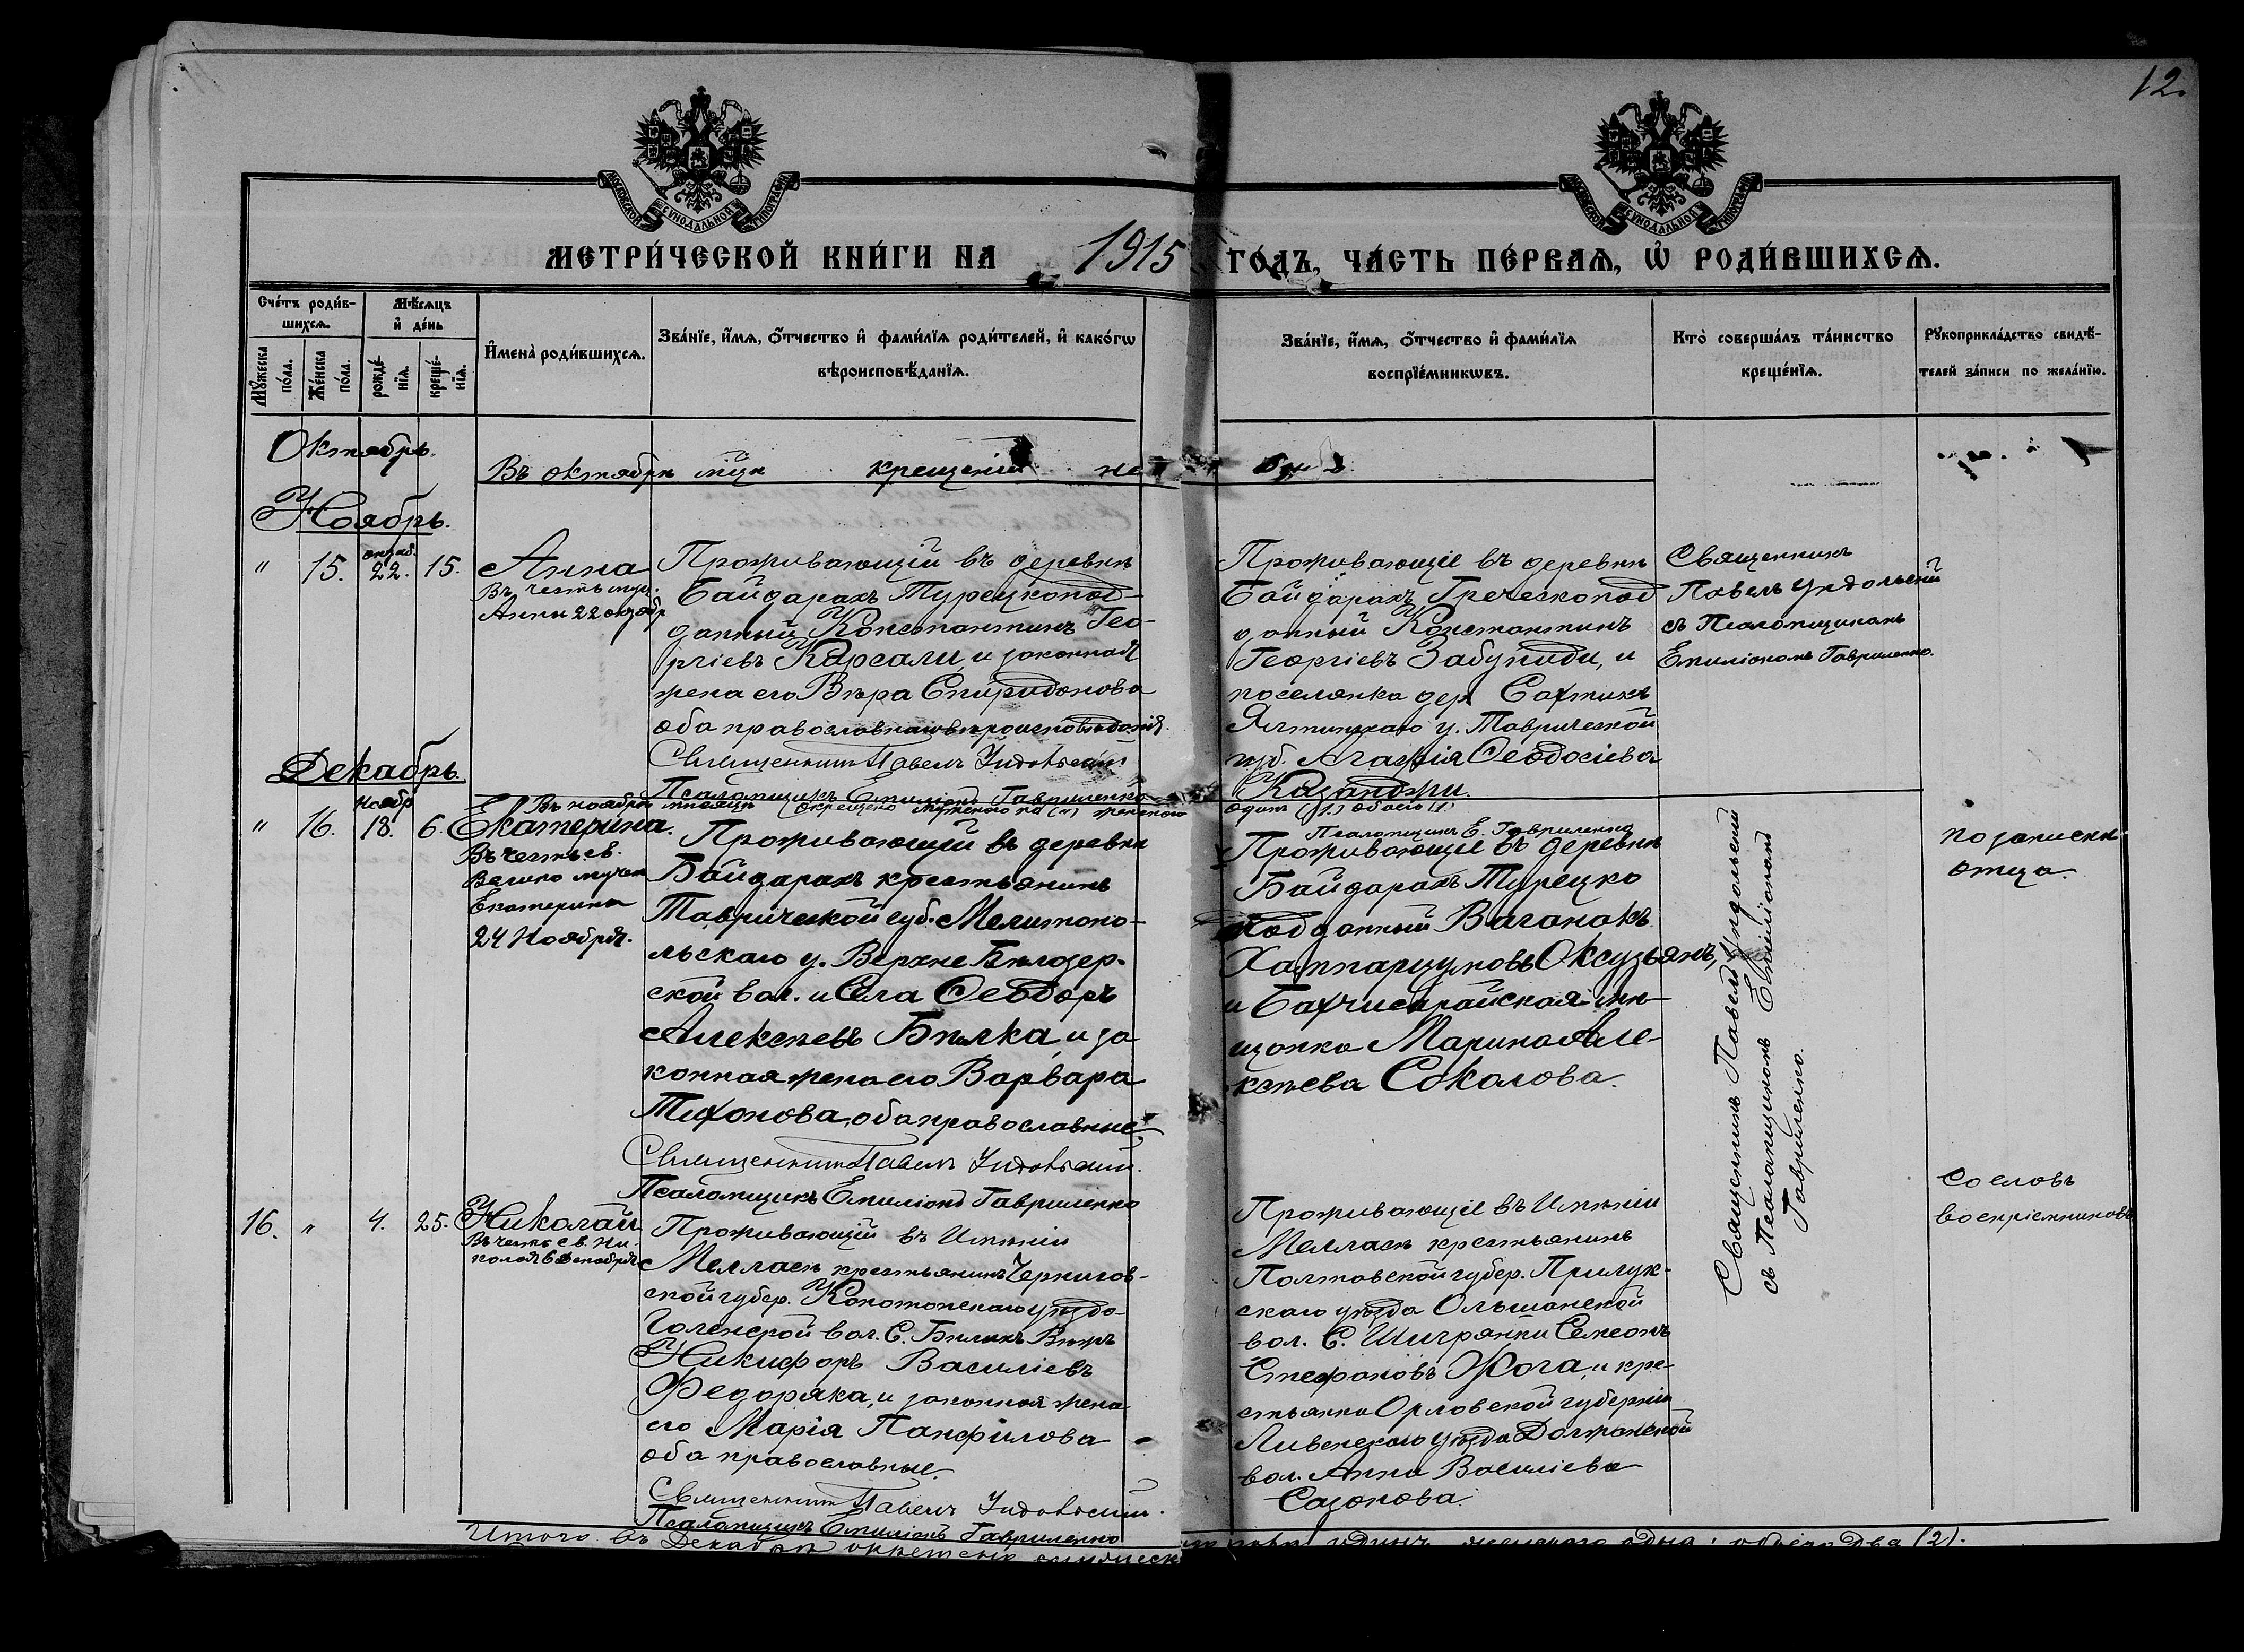 12.
МОСКОВСКОЙ СУНОДАЛЬНОЙ ТИПОГРАФІИ
МОСКОВСКОЙ СУНОДАЛЬНОЙ ТИПОГРАФІИ
МЕТРИ́ЧЕСКОЙ КНИ́ГИ НА 1915 ГО́ДЪ, ЧА́СТЬ ПЕ́РВАѦ, Ѡ҆ РОДИ́ВШИХСѦ.
Сче́тъ роди́в-
шихсѧ.
Мѣ́сѧцъ
и҆ де́нь
Мꙋ́жеска
по́ла.
Же́нска
по́ла.
рожде́-
нїѧ.
креще́-
нїѧ.
И҆мена̀ роди́вшихсѧ.
Зва́нїе, и҆́мѧ, ѻ҆́тчество и҆ фами́лїѧ роди́телей, и҆ како́гѡ
вѣроисповѣ́данїѧ.
Зва́нїе, и҆́мѧ, ѻ҆́тчество и҆ фами́лїѧ
воспрїе́мникѡвъ.
Кто̀ соверша́лъ та́инство
креще́нїѧ.
Рꙋкоприкла́дство свидѣ́-
телей за́писи по жела́нїю.
Октябрь.
Въ октябрѣ м̃цѣ крещеній не
Ноябрь.
" 15. октяб. 22. 15.
Анна
Въ честь муч.
Анны 22 октябр
Проживающій въ деревнѣ
Байдарахъ Турецкопод-
данный Константинъ Гео-
ргіевъ Карсали, и законная
жена его Вѣра Спиридонова
оба православнаго вѣроисповѣданія.
Священникъ Павелъ Ундольскій
Псаломщикъ Емиліонъ Гавриленко
Проживающіе въ деревнѣ
Байдарахъ Греческопод
данный Константинъ
Георгіевъ Забуниди, и
поселянка дер. Сахтикъ
Ялтинскаго у. Таврической
губ. Агафія Ѳеодосіева
Казанджи.
Священникъ
Павелъ Ундольскій
съ Псаломщикомъ
Емиліономъ Гавриленко.
Въ ноябрѣ мѣсяцѣ окрещено мужеского на (н) женского
одинъ (1.) обоего (1)
Псаломщикъ Е. Гавриленко
Декабрь.
" 16. ноябр 18. 6.
Екатерина.
Въ честь св.
Велико мучен
Екатерины
24 Ноября.
Проживающій въ деревнѣ
Байдарахъ крестьянинъ
Таврической губ. Мелитопо-
льскаго у. Верхне Бѣлозер-
ской вол. и села Ѳеодоръ
Алексѣевъ Бѣлка, и за
конная жена его Варвара
Тихонова, оба православные.
Священникъ Павелъ Ундольскій.
Псаломщикъ Емиліонъ Гавриленко
Проживающіе въ деревнѣ
Байдарахъ Турецко
подданный Ваганакъ
Хампарцумовъ Оксузьянъ,
и Бахчисарайская мѣ-
щанка Марина Але-
ксѣева Соколова.
Священникъ Павелъ Ундольскій
съ Псаломщикомъ Емиліономъ
Гавриленко.
по записки
отца
16. " 4. 25.
Николай
Въ честь св. Ни-
колая 6 декабря
Проживающій въ Имѣніи
Мелласъ крестьянинъ Чернигов-
ской губер. Конотопскаго уѣзда
Голенской вол. С.
Никифоръ Василіевъ
Федоряка, и законная жена
его Марія Панфилова
оба православные.
Священникъ Павелъ Ундольскій.
Псаломщикъ Емиліонъ Гавриленко
Проживающіе въ Имѣніи
Мелласъ крестьянинъ
Полтавской губер. Прилук-
скаго уѣзда Ольшанской
вол. С. Семеонъ
Стефановъ Жога, и кре-
стьянка Орловской губерніи
Ливенскаго уѣзда Должанской
вол. Анна Василіева
Сазонова.
Со словъ
воспріемниковъ
Итого въ Декабрѣ
одинъ женского одна: обоего два (2).